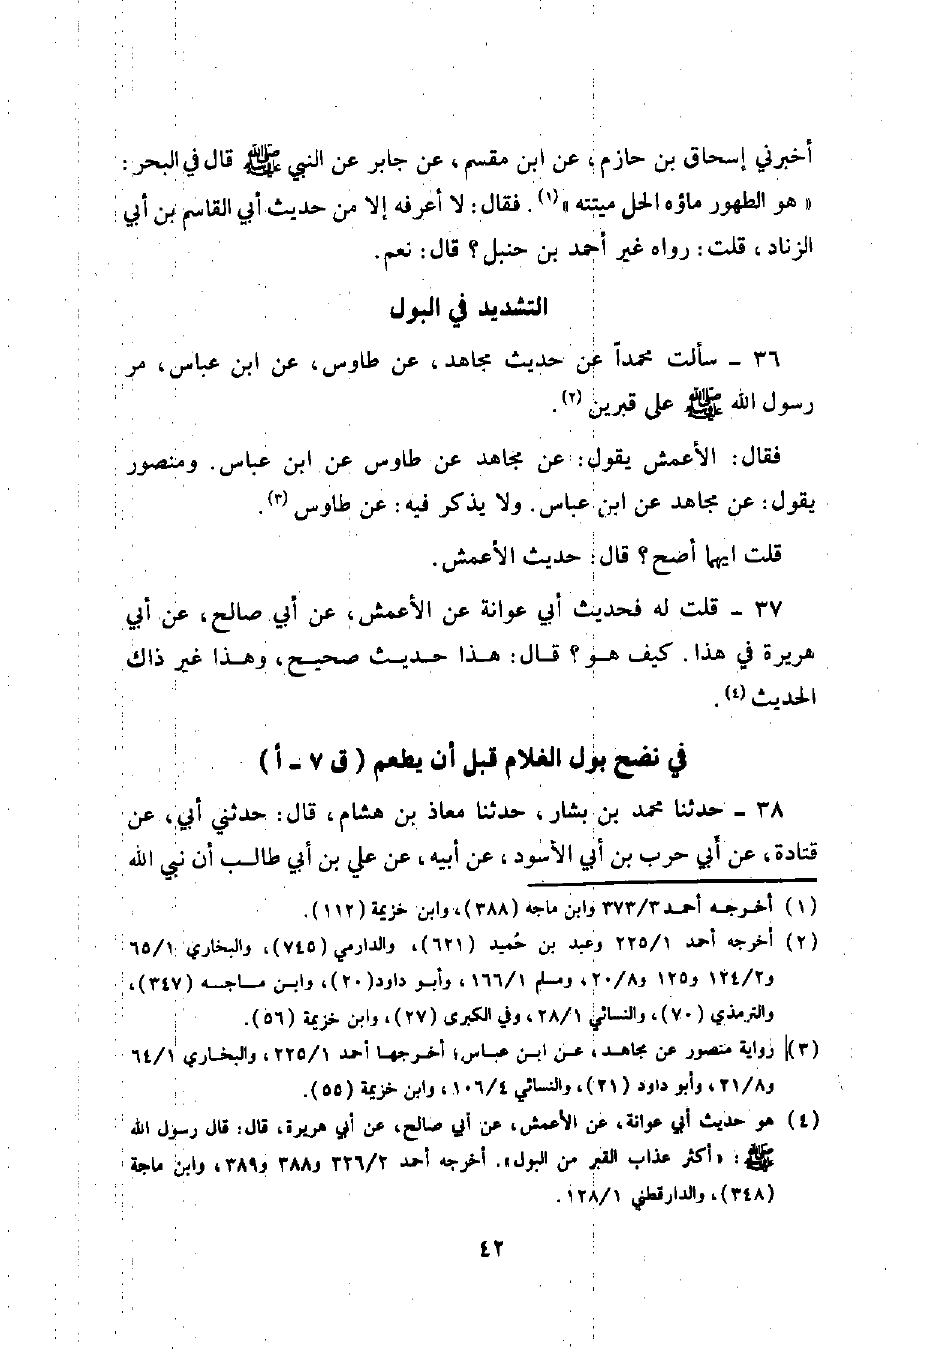 أخبرني إسحاق بن حازم، عن ابن مقسم، عن جابر عن النبي ﷺ قال في البحر:
« هو الطهور ماؤه الحل ميتته »(١). فقال: لا أعرفه إلا من حديث أبي القاسم بن أبي
الزناد، قلت: رواه غير أحمد بن حنبل؟ قال: نعم.
التشديد في البول
٣٦ - سألت محمداً عن حديث مجاهد، عن طاوس، عن ابن عباس، مر
رسول الله ﷺ على قبرين(٢).
فقال: الأعمش يقول: عن مجاهد عن طاوس عن ابن عباس. ومنصور
يقول: عن مجاهد عن ابن عباس. ولا يذكر فيه: عن طاوس(٣).
قلت ايهما أصح؟ قال: حديث الأعمش.
٣٧ - قلت له فحديث أبي عوانة عن الأعمش، عن أبي صالح، عن أبي
هريرة في هذا. كيف هو؟ قال: هذا حديث صحيح، وهذا غير ذاك
الحديث(٤).
في نضح بول الغلام قبل أن يطعم ( ق ٧ - أ )
٣٨ - حدثنا محمد بن بشار، حدثنا معاذ بن هشام، قال: حدثني أبي، عن
قتادة، عن أبي حرب بن أبي الأسود، عن أبيه، عن علي بن أبي طالب أن نبي الله
(١) أخرجه أحمد ٣٧٣/٣ وابن ماجه (٣٨٨)، وابن خزيمة (١١٢).
(٢) أخرجه أحمد ٢٢٥/١ وعبد بن حُميد (٦٢١)، والدارمي (٧٤٥)، والبخاري ٦٥/١
و١٢٤/٢ و١٢٥ و٢٠/٨، ومسلم ١٦٦/١، وأبو داود(٢٠)، وابن ماجه (٣٤٧)،
والترمذي (٧٠)، والنسائي ٢٨/١، وفي الكبرى (٢٧)، وابن خزيمة (٥٦).
(٣) رواية منصور عن مجاهد، عن ابن عباس؛ أخرجها أحمد ٢٢٥/١، والبخاري ٦٤/١
و٢١/٨، وأبو داود (٢١)، والنسائي ١٠٦/٤، وابن خزيمة (٥٥).
(٤) هو حديث أبي عوانة، عن الأعمش، عن أبي صالح، عن أبي هريرة، قال: قال رسول الله
ﷺ: «أكثر عذاب القبر من البول». أخرجه أحمد ٣٢٦/٢ و٣٨٨ و٣٨٩، وابن ماجة
(٣٤٨)، والدارقطني ١٢٨/١.
٤٢